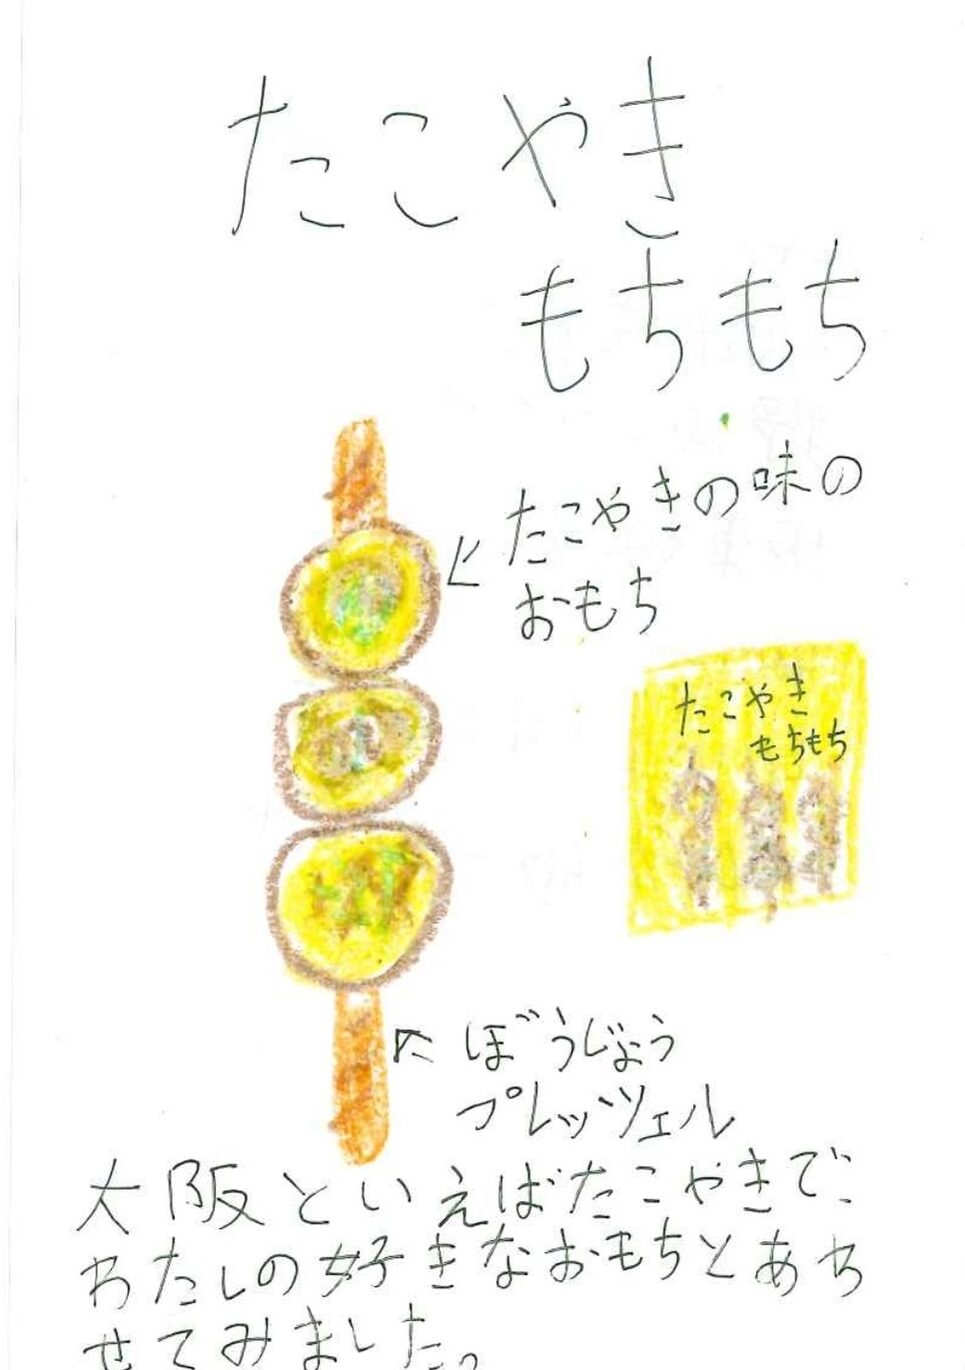 たこやき
もちもち
たこやきの味の
おもち
たこやき
もちもち
ぼうじょう
プレッツェル
大阪といえばたこやきで
わたしの好きなおもちとあわ
せてみました。